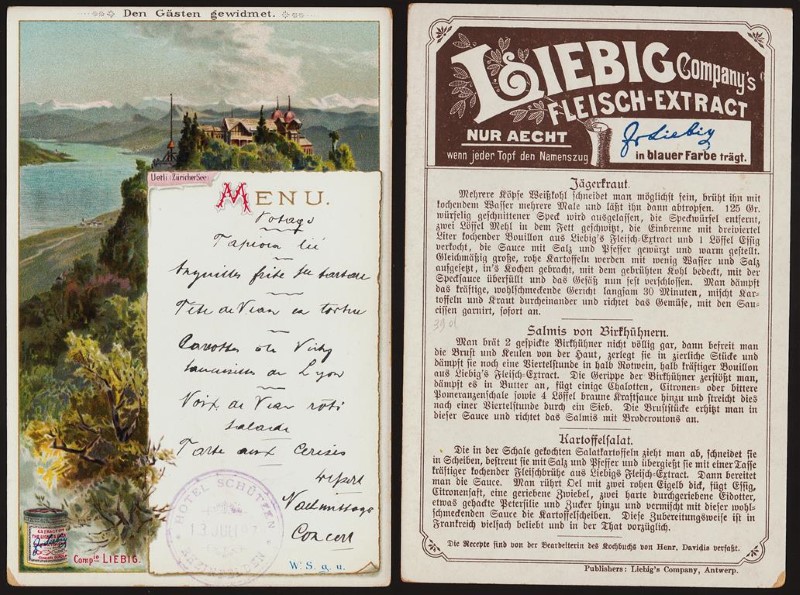 Den Gästen gewidmet.
Uetli. Züricher See
MENU.
Potage
Tapioca lié
Anguilles frite sce tartare
Tête de Veau en tortue
Carottes de Vichy
Saucisses de Lyon
Noix de Veau rôti
Salade
Tarte aux Cerises
Nachmittags
Concert
HOTEL SCHÜTZEN
13 JULI
RHEINFELDEN
Compie LIEBIG.
W. S. g. u.
LIEBIG Company's
FLEISCH-EXTRACT
NUR AECHT
wenn jeder Topf den Namenszug
JvLiebig
in blauer Farbe trägt.
Jägerkraut.
Mehrere Köpfe Weißkohl schneidet man möglichst fein, brüht ihn mit
kochendem Wasser mehrere Male und läßt ihn dann abtropfen. 125 Gr.
würfelig geschnittener Speck wird ausgelassen, die Speckwürfel entfernt,
zwei Löffel Mehl in dem Fett geschwitzt, die Einbrenne mit dreiviertel
Liter kochender Bouillon aus Liebig's Fleisch-Extract und 1 Löffel Essig
verkocht, die Sauce mit Salz und Pfeffer gewürzt und warm gestellt.
Gleichmäßig große, rohe Kartoffeln werden mit wenig Wasser und Salz
aufgesetzt, in's Kochen gebracht, mit dem gebrühten Kohl bedeckt, mit der
Specksauce überfüllt und das Gefäß nun fest verschlossen. Man dämpft
das kräftige, wohlschmeckende Gericht langsam 30 Minuten, mischt Kar-
toffeln und Kraut durcheinander und richtet das Gemüse, mit den Sau-
cissen garnirt, sofort an.
Salmis von Birkhühnern.
Man brät 2 gespickte Birkhühner nicht völlig gar, dann befreit man
die Brust und Keulen von der Haut, zerlegt sie in zierliche Stücke und
dämpft sie noch eine Viertelstunde in halb Rotwein, halb kräftiger Bouillon
aus Liebig's Fleisch-Extract. Die Gerippe der Birkhühner zerstößt man,
dämpft es in Butter an, fügt einige Chalotten, Citronen- oder bittere
Pomeranzenschale sowie 4 Löffel braune Kraftsauce hinzu und streicht dies
nach einer Viertelstunde durch ein Sieb. Die Bruststücke erhitzt man in
dieser Sauce und richtet das Salmis mit Broderoutons an.
Kartoffelsalat.
Die in der Schale gekochten Salatkartoffeln zieht man ab, schneidet sie
in Scheiben, bestreut sie mit Salz und Pfeffer und übergießt sie mit einer Tasse
kräftiger kochender Fleischbrühe aus Liebigs Fleisch-Extract. Dann bereitet
man die Sauce. Man rührt Oel mit zwei rohen Eigelb dick, fügt Essig,
Citronensaft, eine geriebene Zwiebel, zwei harte durchgeriebene Eidotter,
etwas gehackte Petersilie und Zucker hinzu und vermischt mit dieser wohl-
schmeckenden Sauce die Kartoffelscheiben. Diese Zubereitungsweise ist in
Frankreich vielfach beliebt und in der That vorzüglich.
Die Recepte sind von der Bearbeiterin des Kochbuchs von Henr. Davidis verfaßt.
Publishers: Liebig's Company, Antwerp.